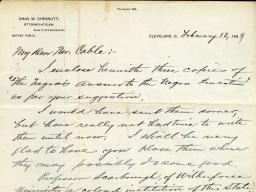 CHAS. W. CHESNUTT,
ATTORNEY-AT-LAW,
NOTARY PUBLIC.
CLEVELAND, O., February 12, 1889
My dear Mr. Cable:-
I enclose herewith three copies of
"The Negro's Answer to the Negro Question"
as per your suggestion,
I would have sent them sooner,
but have really not had time to write
them until now. I shall be very
glad to have you place them where
they may possibly do some good.
Professor Scarborough, of Wilberforce
University a col'd institution of this State